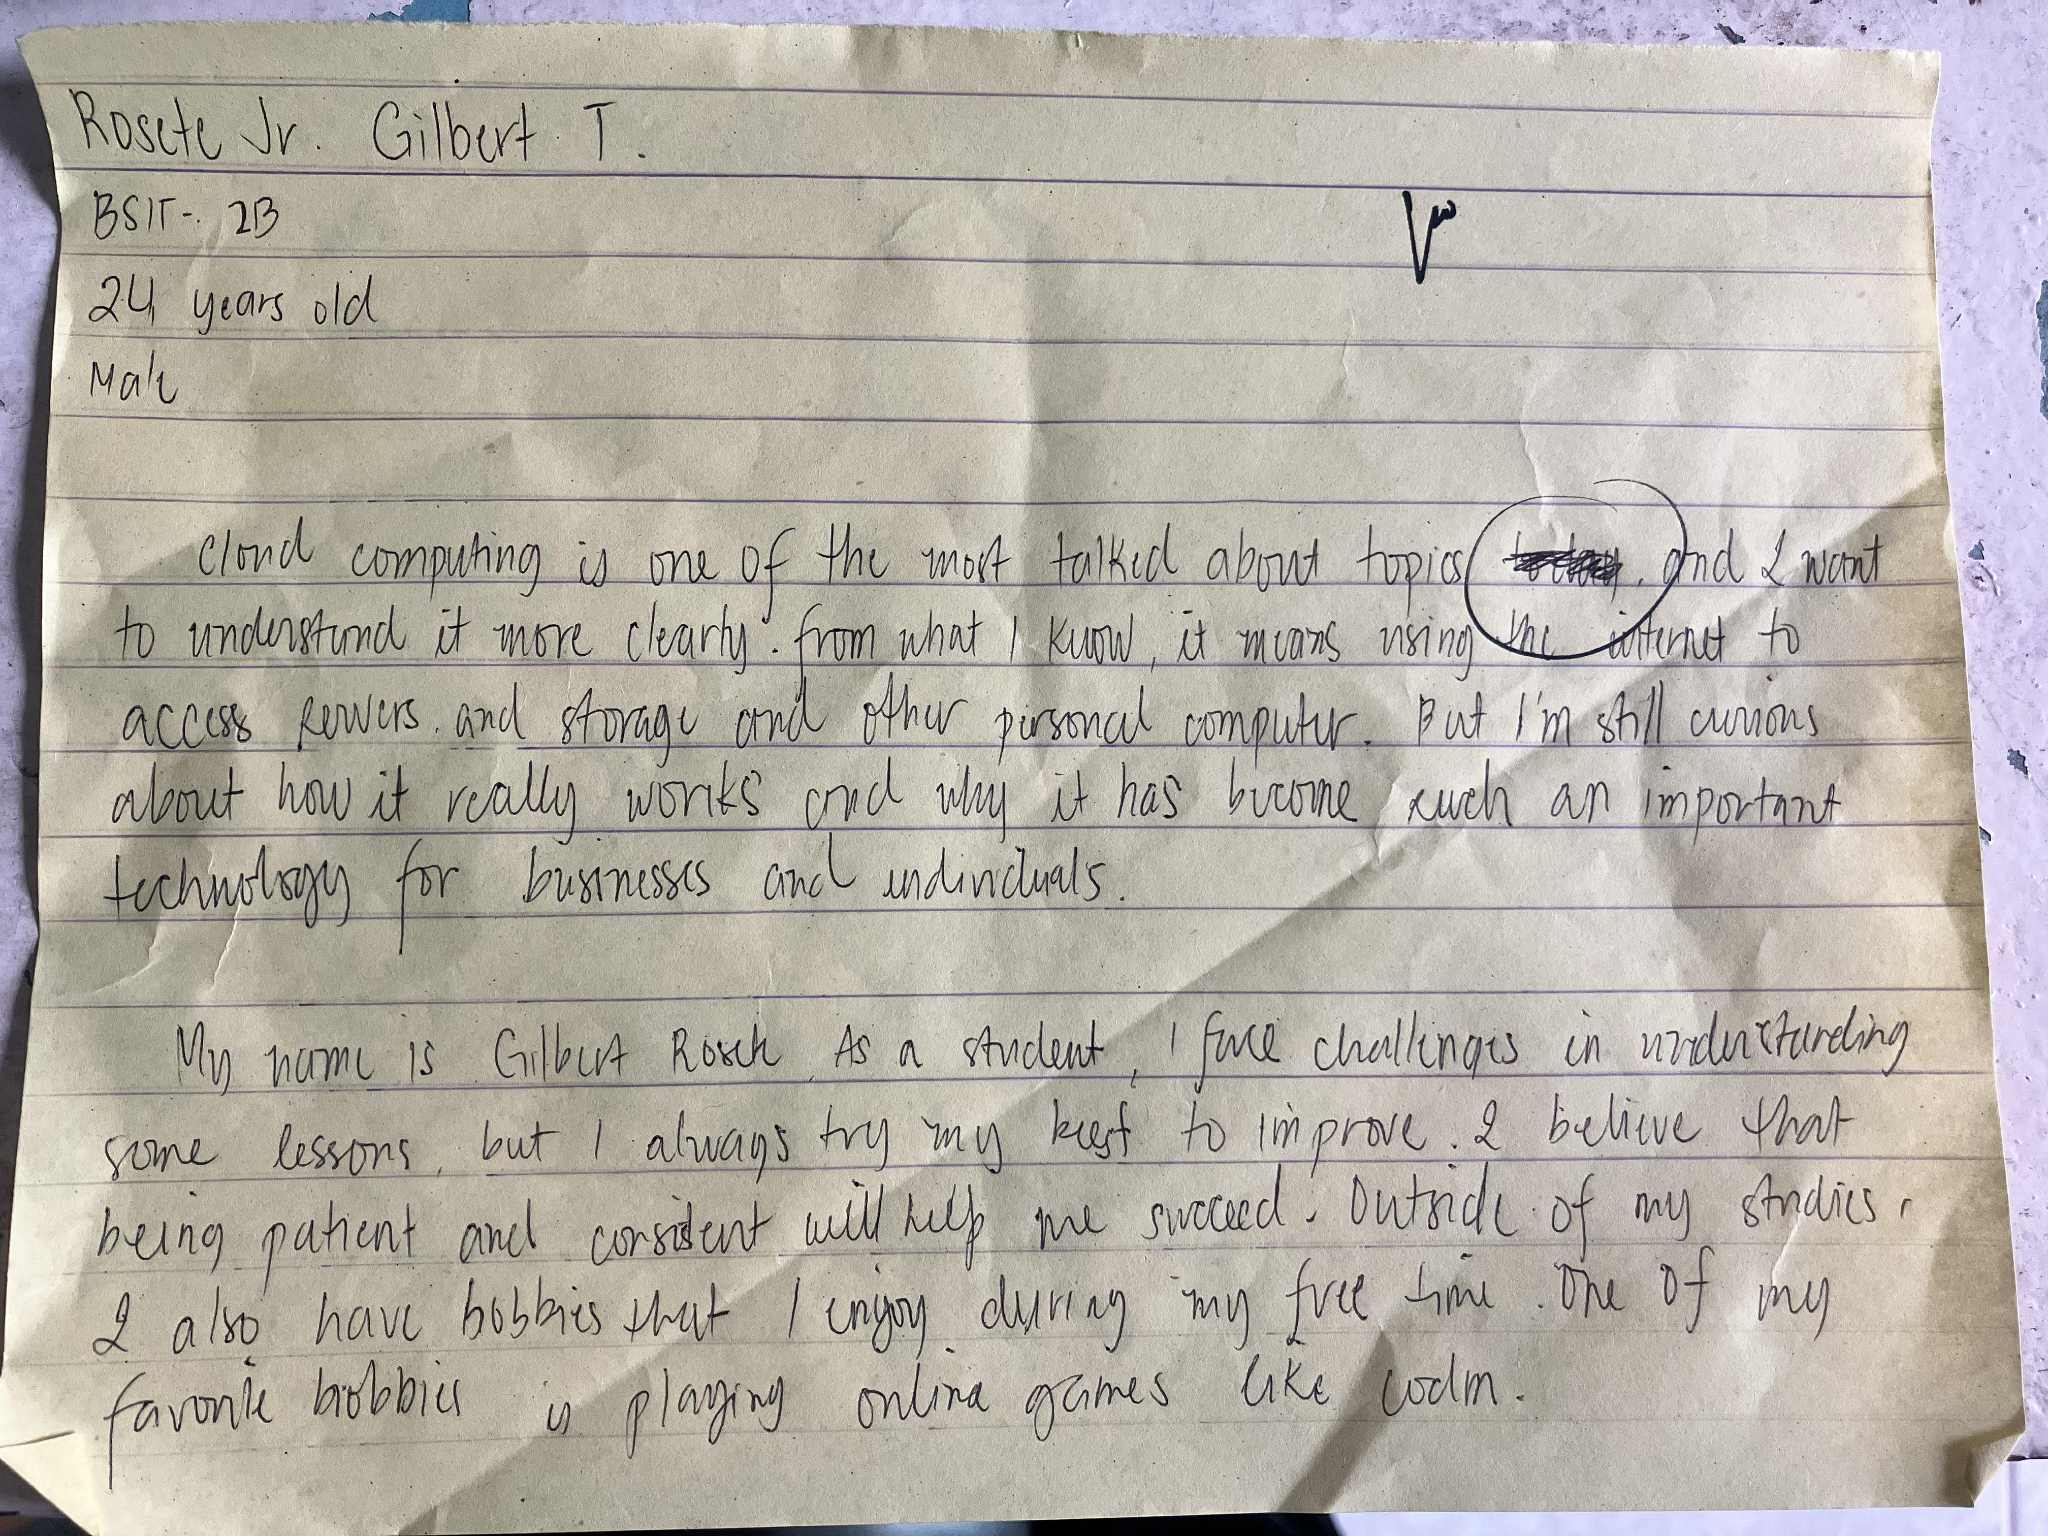 Rosete Jr. Gilbert T.
BSIT- 2B
24 years old
Male
Cloud computing is one of the most talked about topics and I want
to understand it more clearly. from what I know, it means using the internet to
access servers. and storage and other personal computer. But I'm still curious
about how it really works and why it has become such an important
technology for businesses and individuals.
My name is Gilbert Rosete. As a student, I face challenges in understanding
some lessons, but I always try my best to improve. I believe that
being patient and consistent will help me succeed. Outside of my studies,
I also have hobbies that I enjoy during my free time. One of my
favorite hobbies is playing online games like codm.